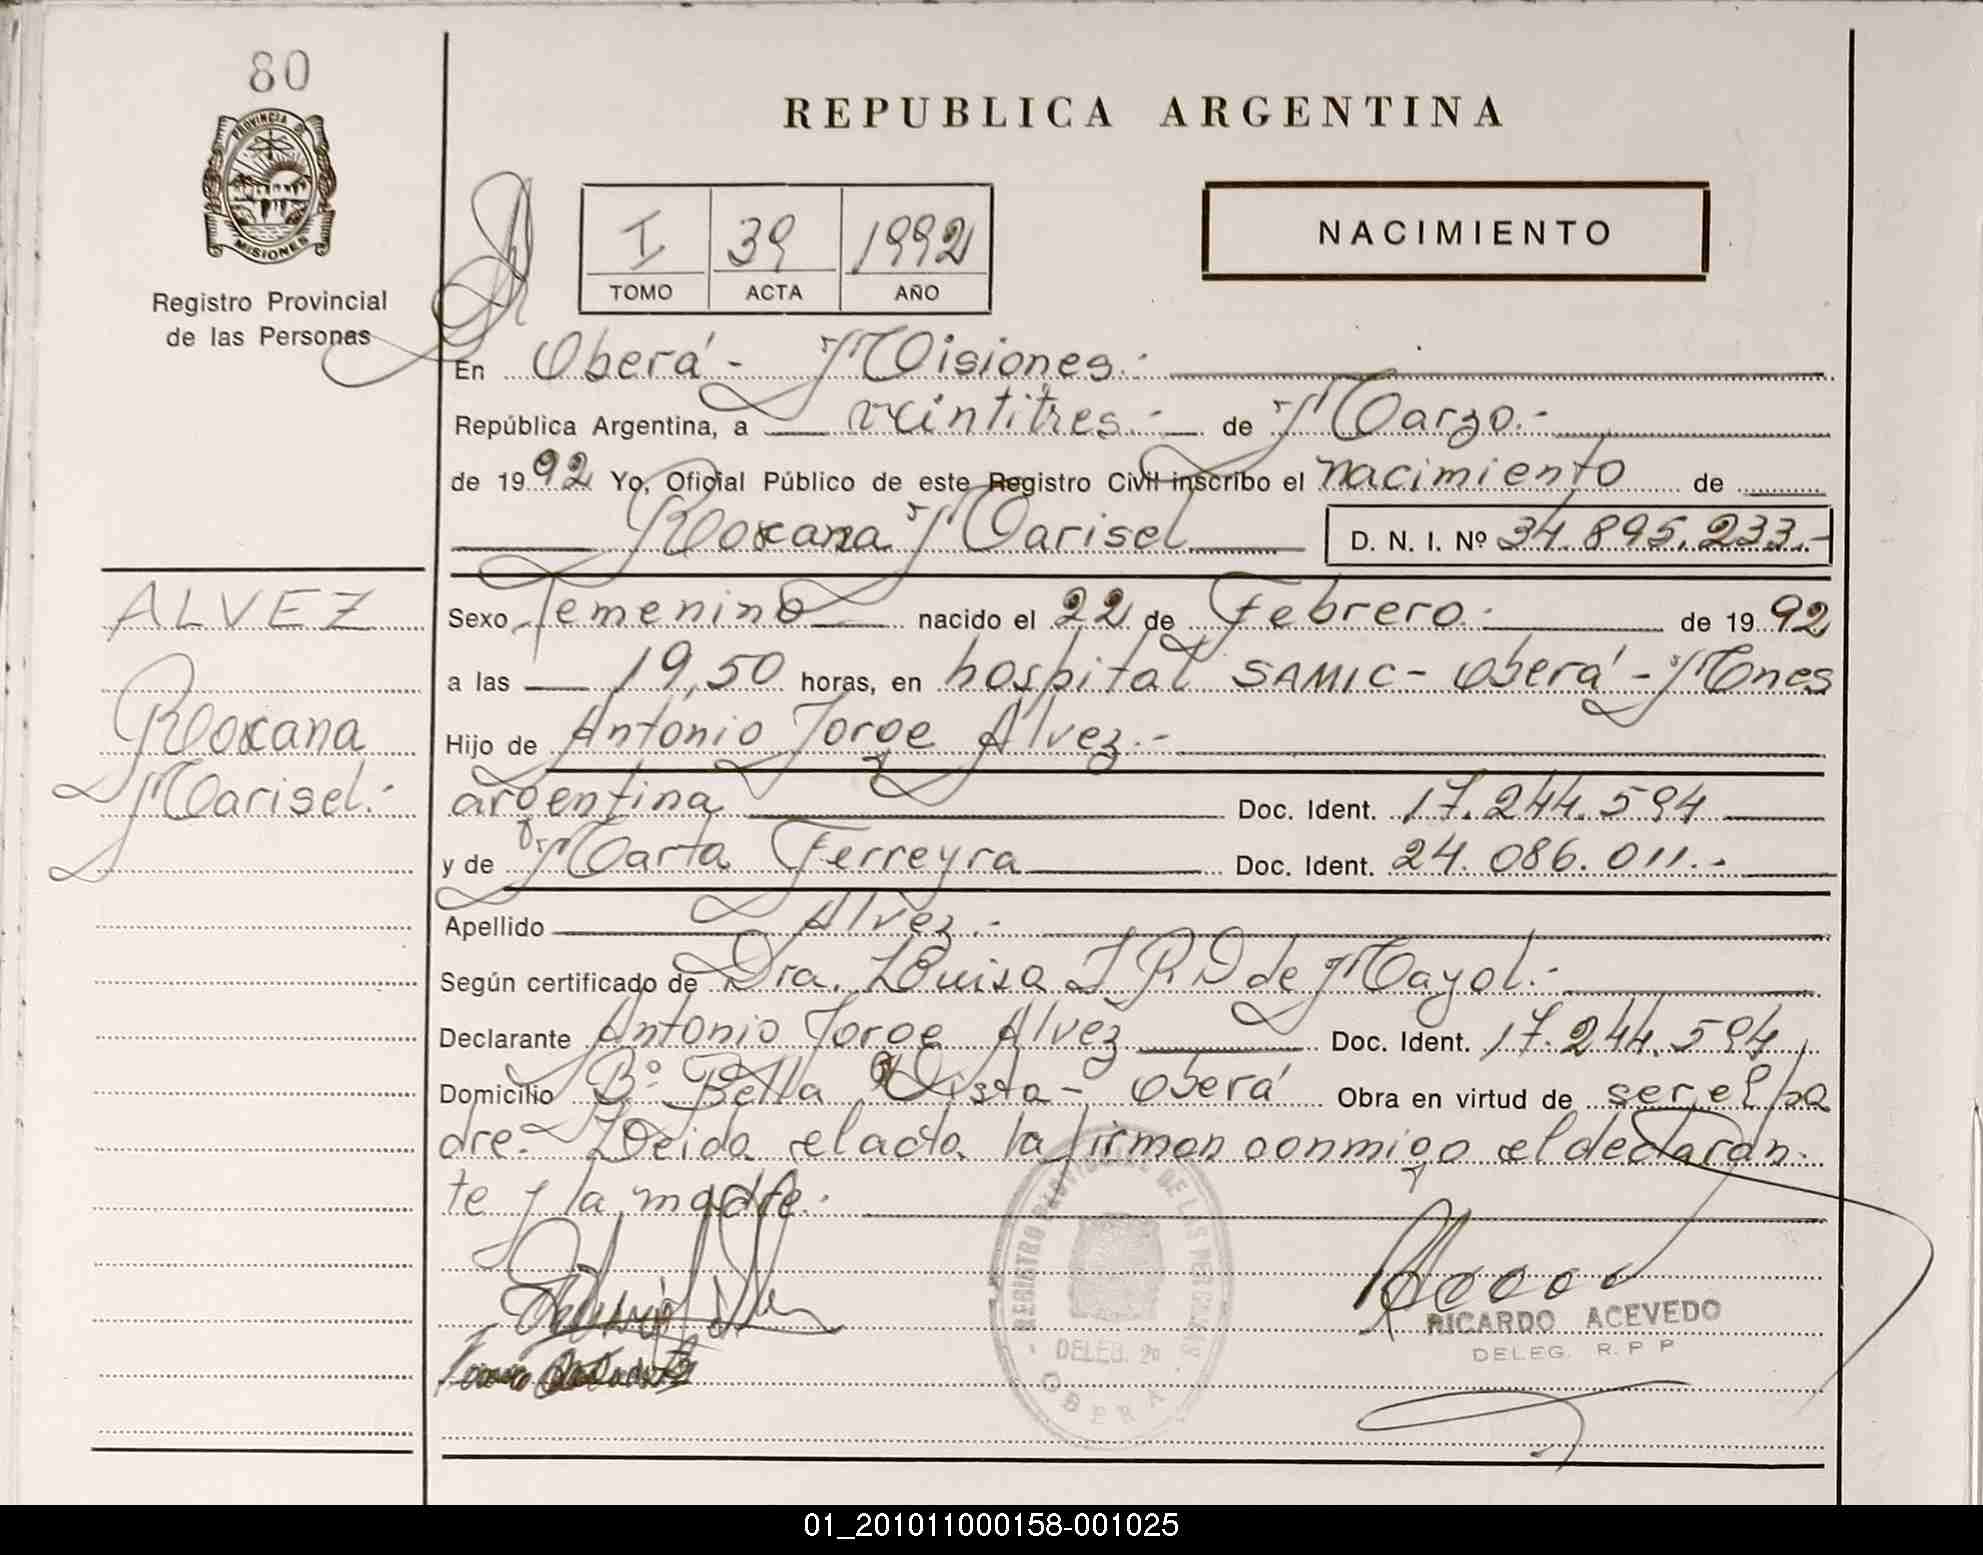 80
PROVINCIA DE
MISIONES
Registro Provincial
de las Personas
REPUBLICA ARGENTINA
I 39 1992
TOMO ACTA AÑO
NACIMIENTO
En Oberá - Misiones.-
República Argentina, a veintitres.- de Marzo.-
de 1992 Yo, Oficial Público de este Registro Civil inscribo el nacimiento de
Roxana Marisel D. N. I. Nº 34.895.233.-
ALVEZ
Roxana
Marisel.-
Sexo Femenino nacido el 22 de Febrero.- de 1992
a las 19,50 horas, en hospital SAMIC - Oberá - Mnes
Hijo de Antonio Jorge Alvez.-
argentina Doc. Ident. 17.244.594
y de Marta Ferreyra Doc. Ident. 24.086.011.-
Apellido Alvez.-
Según certificado de Dra. Luisa I R D de Mayol.-
Declarante Antonio Jorge Alvez Doc. Ident. 17.244.594
Domicilio Bº Bella Vista - Oberá Obra en virtud de ser el pa
dre.- Leida el acta la firman conmigo el declaran-
te y la madre.-
REGISTRO PROVINCIAL DE LAS PERSONAS
DELEG. 2a
OBERA
RICARDO ACEVEDO
DELEG. R. P P
01_201011000158-001025